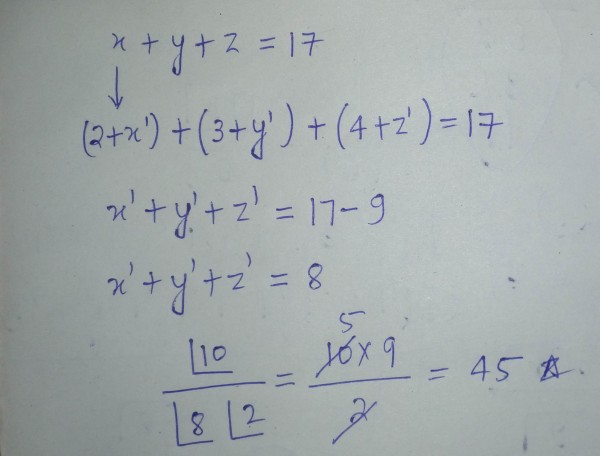 x + y + z = 17
↓
(2+x') + (3+y') + (4+z') = 17
x' + y' + z' = 17 - 9
x' + y' + z' = 8
5
⌊10 / ⌊8 ⌊2 = 10 × 9 / 2 = 45